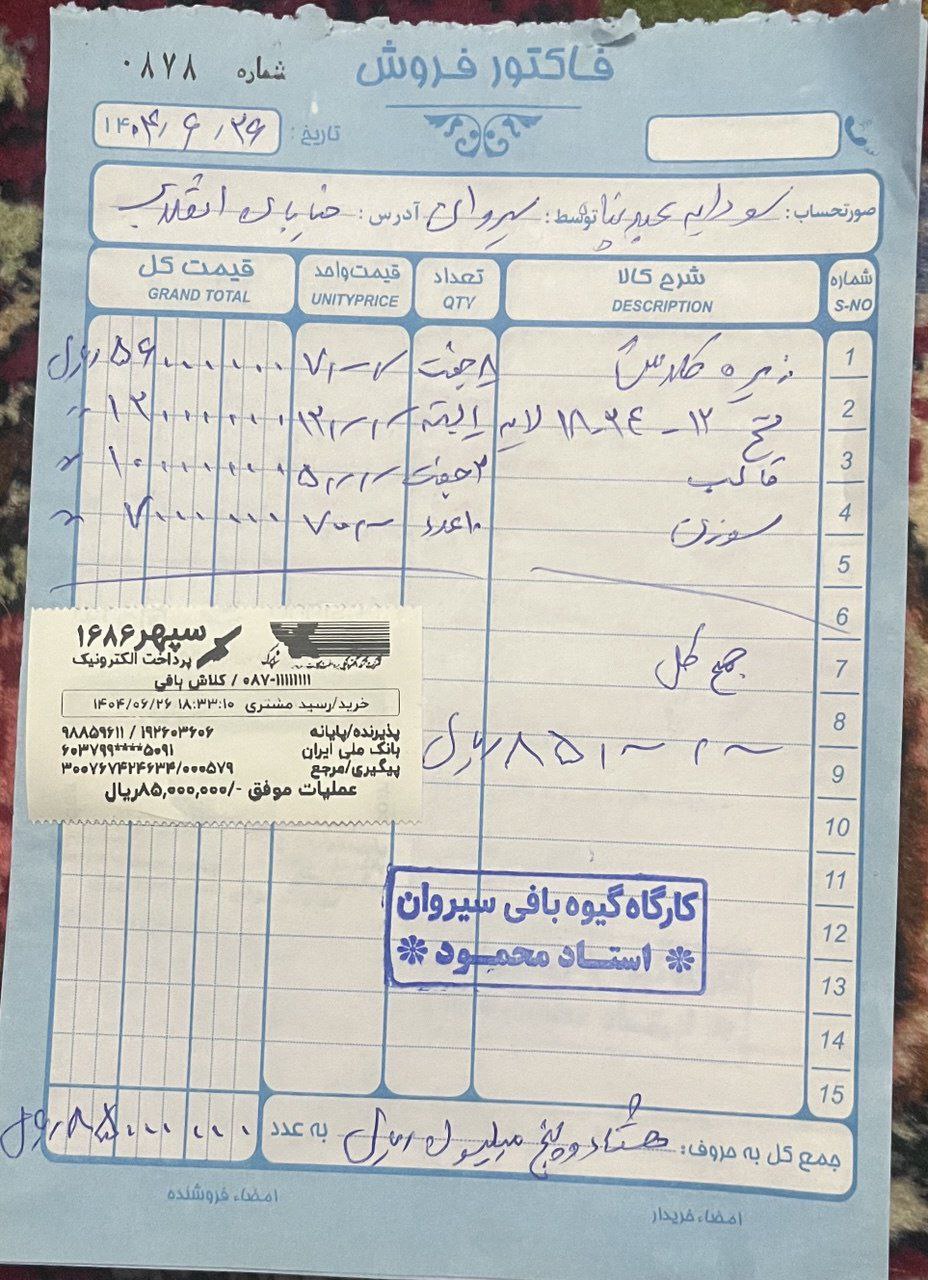 فاکتور فروش
شماره ۰۸۷۸
تاریخ: ۱۴۰۴/۶/۲۶
صورتحساب: توسط: سیروان آدرس: خیابان انقلاب
شماره شرح کالا تعداد قیمت واحد قیمت کل
S-NO DESCRIPTION QTY UNITYPRICE GRAND TOTAL
1 زیره کلاش ۸ جفت ۷/۰۰۰/۰۰۰ ۵۶۰۰۰۰۰۰ ریال
2 نخ ۱۲ - ۲۴ - ۱۸ لایه ۱۳/۰۰۰/۰۰۰ ۱۲۰۰۰۰۰۰ "
3 قالب ۲ جفت ۵/۰۰۰/۰۰۰ ۱۰۰۰۰۰۰۰ "
4 سوزن ۱۰ عدد ۷۰۰/۰۰۰ ۷۰۰۰۰۰۰ "
5
6
7 جمع کل
8 ۸۵/۰۰۰/۰۰۰ ریال
9
10
11
12
13
14
15
سپهر ۱۶۸۶
پرداخت الکترونیک
۰۸۷-۱۱۱۱۱۱۱۱ / کلاش بافی
خرید/رسید مشتری ۱۴۰۴/۰۶/۲۶ ۱۸:۳۳:۱۰
پذیرنده/پایانه ۹۸۸۵۹۶۱۱ / ۱۹۲۶۰۳۶۰۶
بانک ملی ایران ۶۰۳۷۹۹****۵۰۹۱
پیگیری/مرجع ۳۰۰۷۶۷۴۲۴۶۳۴/۰۰۰۵۷۹
عملیات موفق -/۸۵,۰۰۰,۰۰۰ریال
کارگاه گیوه بافی سیروان
استاد محمود
جمع کل به حروف: هشتاد و پنج میلیون ریال به عدد ۸۵۰۰۰۰۰۰ ریال
امضاء خریدار امضاء فروشنده